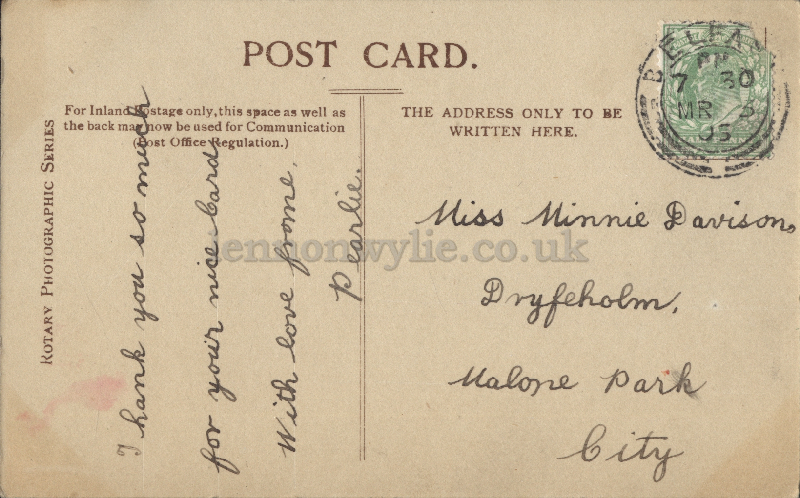 POST CARD.
For Inland Postage only, this space as well as
the back may now be used for Communication
(Post Office Regulation.)
THE ADDRESS ONLY TO BE
WRITTEN HERE.
ROTARY PHOTOGRAPHIC SERIES
BELFAST
PM
7 30
MR 3
05
I hank you so much
for your nice Card
With love frome.
Pearlie.
Miss Minnie Davison,
Dryfeholm,
Malone Park
City
lennonwylie.co.uk